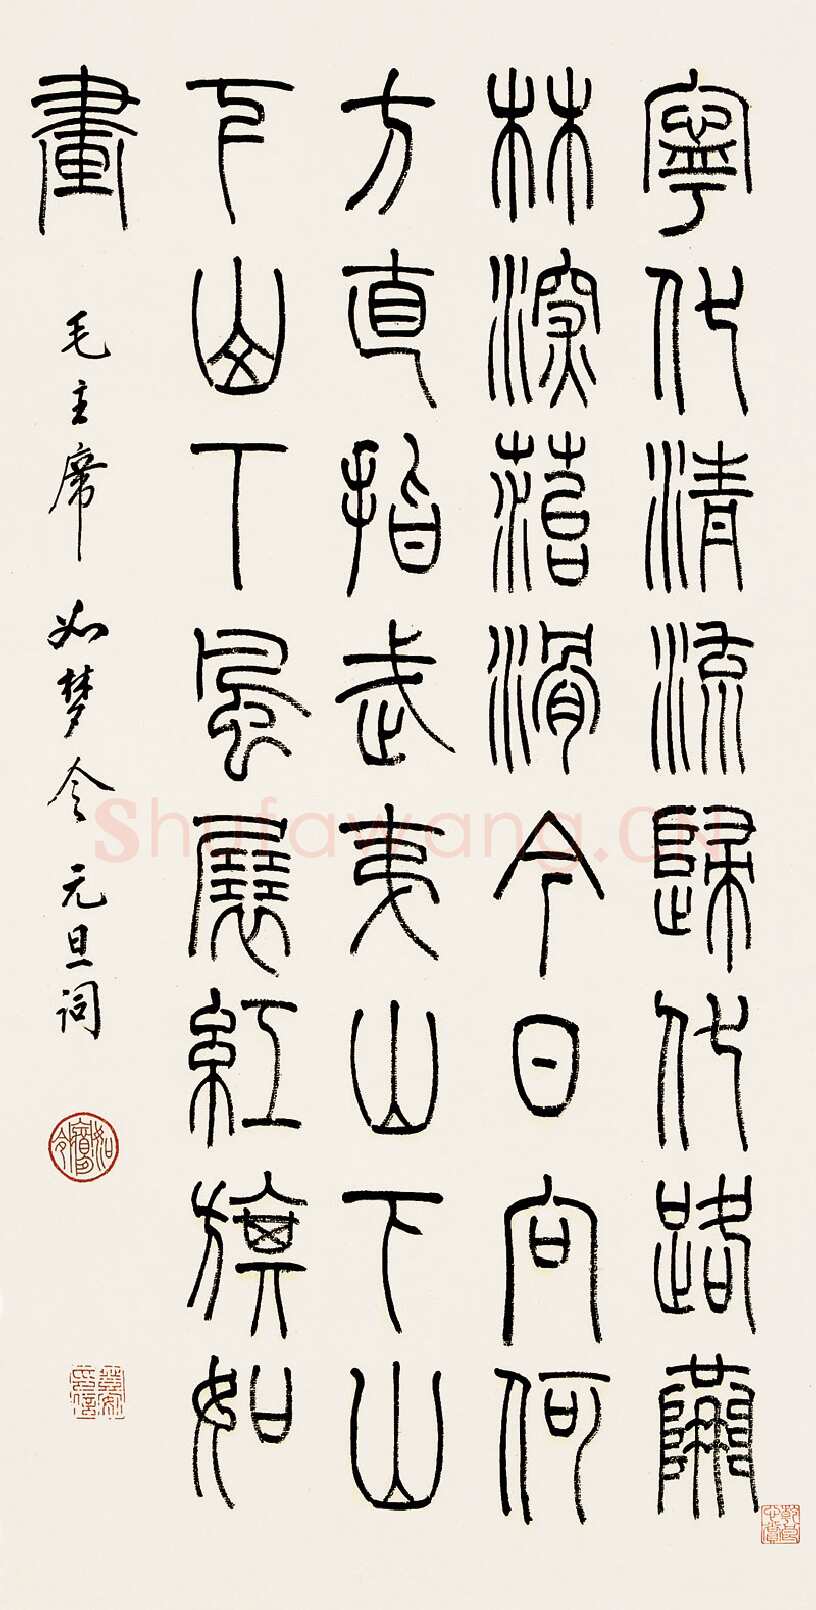 寧化清流歸化路隘
林深苔滑今日向何
方直指武夷山下山
下山下風展紅旗如
畫
毛主席如梦令元旦词
Shufawang.CN